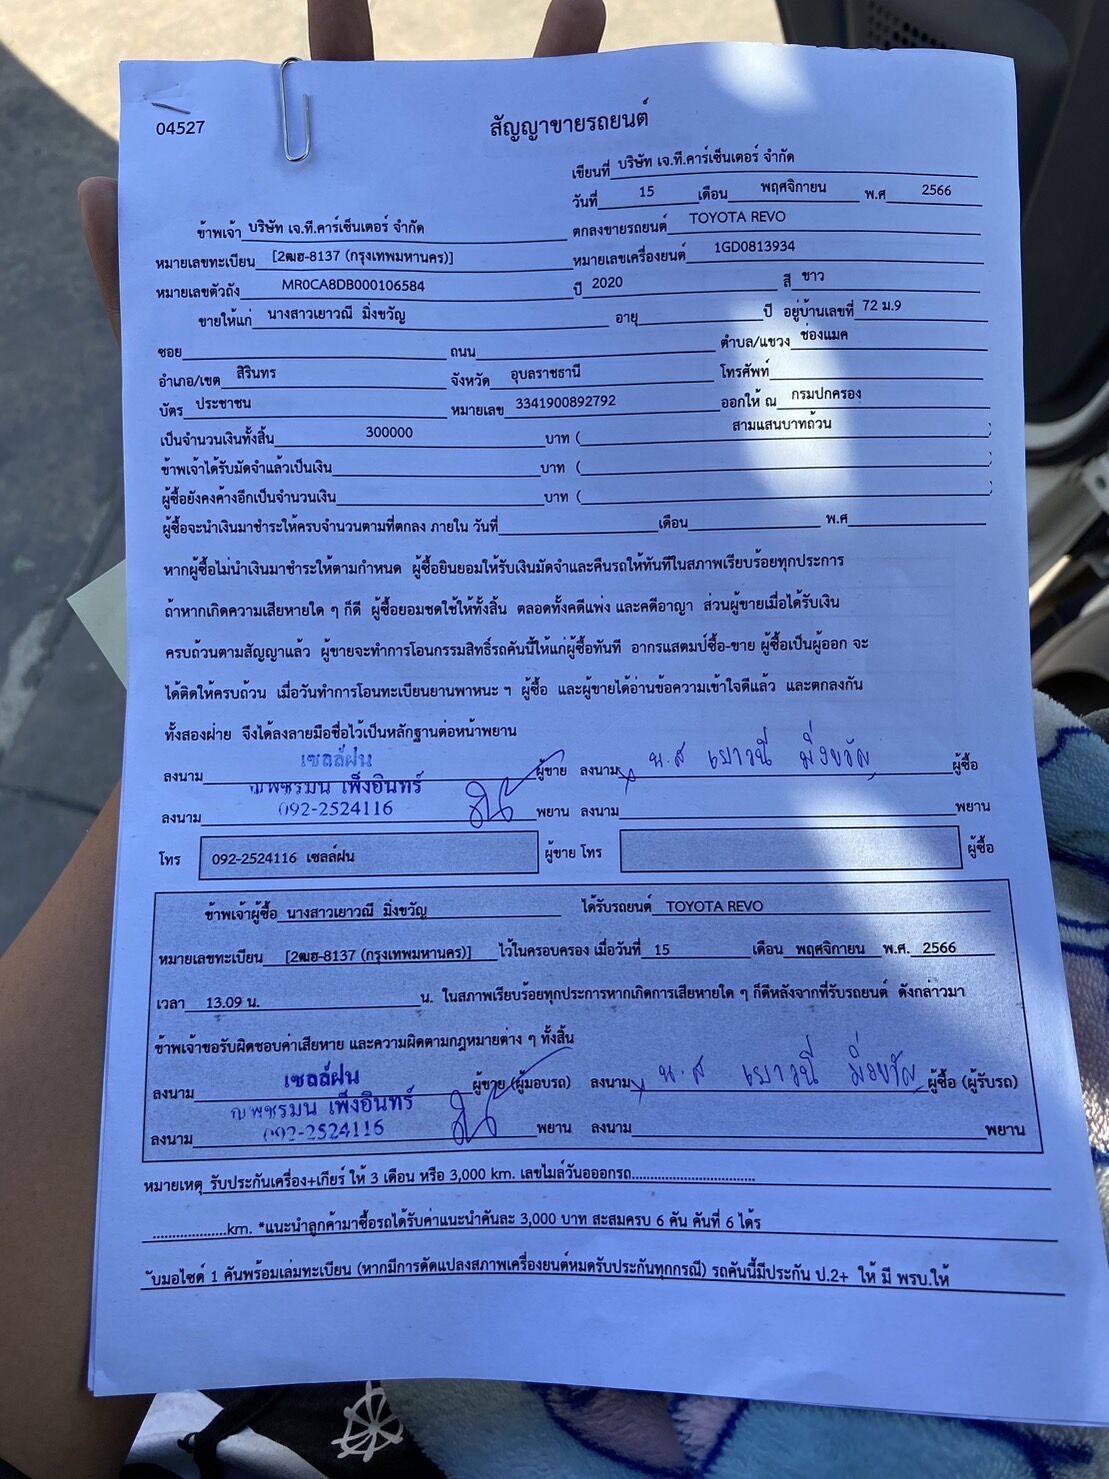 04527
สัญญาขายรถยนต์
เขียนที่ บริษัท เจ.ที.คาร์เซ็นเตอร์ จำกัด
วันที่ 15 เดือน พฤศจิกายน พ.ศ 2566
ข้าพเจ้า บริษัท เจ.ที.คาร์เซ็นเตอร์ จำกัด ตกลงขายรถยนต์ TOYOTA REVO
หมายเลขทะเบียน [2ฒฮ-8137 (กรุงเทพมหานคร)] หมายเลขเครื่องยนต์ 1GD0813934
หมายเลขตัวถัง MR0CA8DB000106584 ปี 2020 สี ขาว
ขายให้แก่ นางสาวเยาวณี มิ่งขวัญ อายุ ปี อยู่บ้านเลขที่ 72 ม.9
ซอย ถนน ตำบล/แขวง ช่องแมค
อำเภอ/เขต สิรินทร จังหวัด อุบลราชธานี โทรศัพท์
บัตร ประชาชน หมายเลข 3341900892792 ออกให้ ณ กรมปกครอง
เป็นจำนวนเงินทั้งสิ้น 300000 บาท ( สามแสนบาทถ้วน )
ข้าพเจ้าได้รับมัดจำแล้วเป็นเงิน บาท ( )
ผู้ซื้อยังคงค้างอีกเป็นจำนวนเงิน บาท ( )
ผู้ซื้อจะนำเงินมาชำระให้ครบจำนวนตามที่ตกลง ภายใน วันที่ เดือน พ.ศ
หากผู้ซื้อไม่นำเงินมาชำระให้ตามกำหนด ผู้ซื้อยินยอมให้รับเงินมัดจำและคืนรถให้ทันทีในสภาพเรียบร้อยทุกประการ
ถ้าหากเกิดความเสียหายใด ๆ ก็ดี ผู้ซื้อยอมชดใช้ให้ทั้งสิ้น ตลอดทั้งคดีแพ่ง และคดีอาญา ส่วนผู้ขายเมื่อได้รับเงิน
ครบถ้วนตามสัญญาแล้ว ผู้ขายจะทำการโอนกรรมสิทธิ์รถคันนี้ให้แก่ผู้ซื้อทันที อากรแสตมป์ซื้อ-ขาย ผู้ซื้อเป็นผู้ออก จะ
ได้ติดให้ครบถ้วน เมื่อวันทำการโอนทะเบียนยานพาหนะ ฯ ผู้ซื้อ และผู้ขายได้อ่านข้อความเข้าใจดีแล้ว และตกลงกัน
ทั้งสองฝ่าย จึงได้ลงลายมือชื่อไว้เป็นหลักฐานต่อหน้าพยาน
ลงนาม เซลล์ฝน ผู้ขาย ลงนาม น.ส เยาวณี มิ่งขวัญ ผู้ซื้อ
ณพชรมน เพ็งอินทร์
ลงนาม 092-2524116 พยาน ลงนาม พยาน
โทร 092-2524116 เซลล์ฝน ผู้ขาย โทร ผู้ซื้อ
ข้าพเจ้าผู้ซื้อ นางสาวเยาวณี มิ่งขวัญ ได้รับรถยนต์ TOYOTA REVO
หมายเลขทะเบียน [2ฒฮ-8137 (กรุงเทพมหานคร)] ไว้ในครอบครอง เมื่อวันที่ 15 เดือน พฤศจิกายน พ.ศ. 2566
เวลา 13.09 น. น. ในสภาพเรียบร้อยทุกประการหากเกิดการเสียหายใด ๆ ก็ดีหลังจากที่รับรถยนต์ ดังกล่าวมา
ข้าพเจ้าขอรับผิดชอบค่าเสียหาย และความผิดตามกฎหมายต่าง ๆ ทั้งสิ้น
ลงนาม เซลล์ฝน ผู้ขาย (ผู้มอบรถ) ลงนาม น.ส เยาวณี มิ่งขวัญ ผู้ซื้อ (ผู้รับรถ)
ณพชรมน เพ็งอินทร์
ลงนาม 092-2524116 พยาน ลงนาม พยาน
หมายเหตุ รับประกันเครื่อง+เกียร์ ให้ 3 เดือน หรือ 3,000 km. เลขไมล์วันอออกรถ...............................
...................km. *แนะนำลูกค้ามาซื้อรถได้รับค่าแนะนำคันละ 3,000 บาท สะสมครบ 6 คัน คันที่ 6 ได้ร
ับมอไซด์ 1 คันพร้อมเล่มทะเบียน (หากมีการดัดแปลงสภาพเครื่องยนต์หมดรับประกันทุกกรณี) รถคันนี้มีประกัน ป.2+ ให้ มี พรบ.ให้